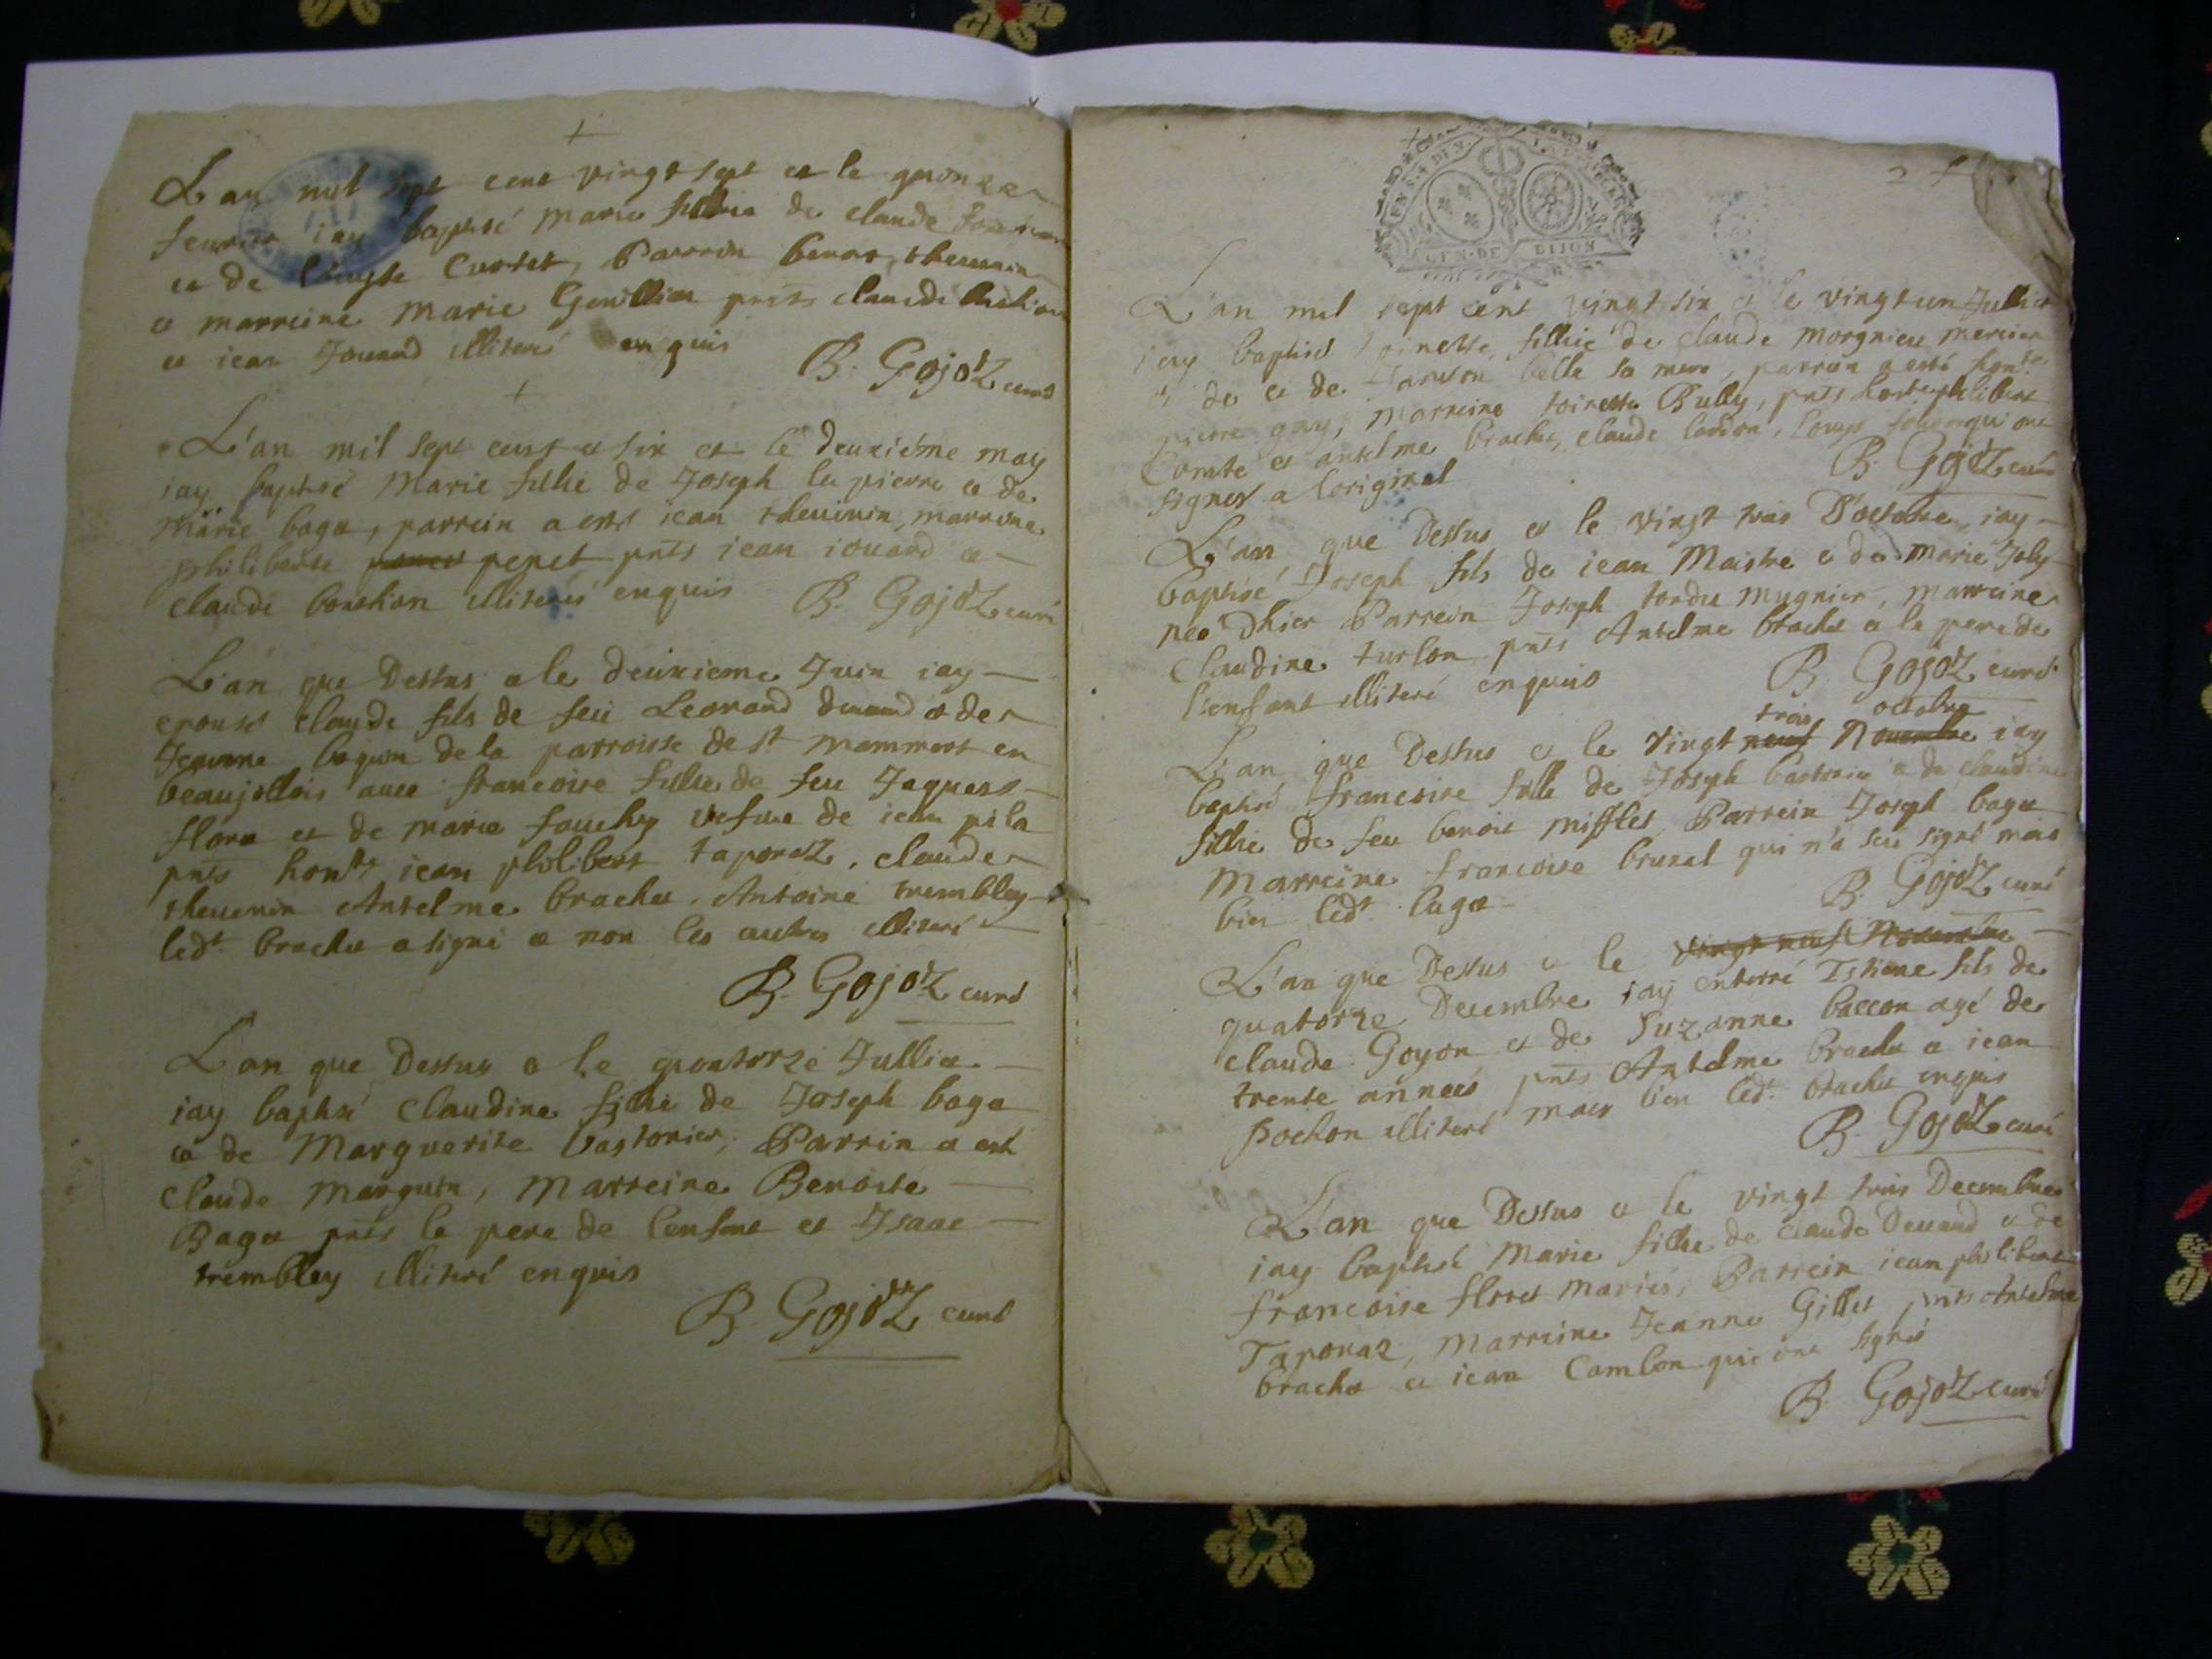 L'an mil sept cent vingt sept et le quonze
feuvrier iay baptisé Marie fillie de claude
et de Curtet, Parrein benoit theuenin
et marreine Marie Genillion pnts claude
et iean Jouand illiteré enquis
B. Gojoz curé
L'an mil sept cent et six et le deuxiéme may
iay baptisé Marie fillie de Joseph la pierre et de
Marie bage, parrein a esté iean theuenin, marreine
philiberte pepet pnts iean iouand et
claude bonthion illiterés enquis
B. Gojoz curé
L'an que Dessus et le deuxieme Juin iay
epousé claude fils de feu Leonard deuaud et de
Jeanne baguin de la parroisse de st mammert en
beaujollois auec francoise fillie de feu Jaques
flore et de marie fouchy vefue de iean pila
pnts honte iean philibert taponaz, claude
theuenin Antelme brachet, Antoine trembley
ledt brachet a signé et non les autres illiteré
B. Gojoz curé
L'an que Dessus et le quatorze Jullie
iay baptisé Claudine fillie de Joseph bage
et de Marguerite bastonier, Parrin a esté
Claude Marguin, Marreine Benoite
Bage pnts le pere de l'enfant et Isaac
trembley illiteré enquis
B. Gojoz curé
GEN. DE DIJON
2
L'an mil sept cent vingt six et le vingt un Jullie
iay baptisé toinette fillie de claude morgnieu mercier
et de belle sa mere, parrein a esté honte
pierre guy, marreine toinette Bully, pnts philibert
Comte et antelme brachet, claude
signer a loriginal
B. Gojoz curé
L'an que Dessus et le vingt trois d'octobre iay
baptisé Joseph fils de iean Maistre et de Marie Joly
née d'hier Parrein Joseph tordu mugnier, marreine
Claudine turlon pnts Antelme brachet et le pere de
l'enfant illiteré enquis
B. Gojoz curé
trois octobre
L'an que Dessus et le vingt neuf Novembre iay
baptisé francoise fille de Joseph bastonier et de claudine
fillie de feu benoit mifflet, Parrein Joseph bage
Marreine francoise brunet qui n'a sçu signé mais
bien ledt bage
B. Gojoz curé
L'an que Dessus et le vingt neuf Novembre
quatorze Decembre iay enterré Estiene fils de
claude Goyon et de Suzanne baccon agé de
trente années pnts Antelme brachet et iean
pochon illiteré mais bien ledt brachet enquis
B. Gojoz curé
L'an que Dessus et le vingt trois Decembre
iay baptisé Marie fillie de Claude Deuaud et de
francoise floret mariés, Parrein iean philibert
Taponaz, Marreine Jeanne Gillet pnts Antelme
brachet et iean Camlon qui ont signés
B. Gojoz curé